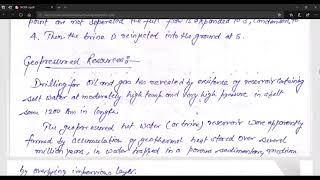 point are not separated the full flow is expanded to 3, condensed to
4. Then the brine is reinjected into the ground at 5.
Geopressured Resources:-
Drilling for oil and gas has revealed by existence of reservoir containing
salt water at moderately high temp and very high pressure in a belt
some 1200 km in length.
The geopressured hot water (or brine) reservoir were apparently
formed by accumulation of geothermal heat stored over several
million years, in water trapped in a porous sedimentary
by overlying impervious layer.